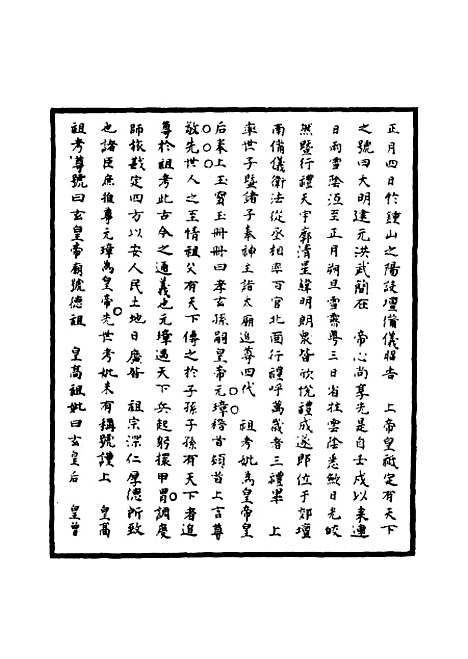 正月四日於鍾山之陽設壇備儀昭告　上帝皇祗定有天下
之號曰大明建元洪武簡在　帝心尚享先是自壬戌以來連
日雨雪陰沍至正月朔旦雪霽粤三日省牲雲陰悉斂日光皎
然暨行禮天宇廓清星緯明朗衆皆欣悅禮成遂即位于郊壇
南備儀衛法從丞相率百官北面行禮呼萬歲者三禮畢　上
率世子暨諸子奉神主詣太廟追尊四代　祖考妣爲皇帝皇
后奉上玉寶玉冊冊曰孝玄孫嗣皇帝元璋稽首頓首上言尊
敬先世人之至情祖父有天下傳之於子孫子孫有天下者追
尊於祖考此古今之通義也元璋遇天下兵起躬擐甲冑調度
師旅戡定四方以安人民土地日廣皆　祖宗深仁厚德所致
也諸臣庶推尊元璋爲皇帝先世考妣未有稱號謹上　皇高
祖考尊號曰玄皇帝廟號德祖　皇高祖妣曰玄皇后　皇曾